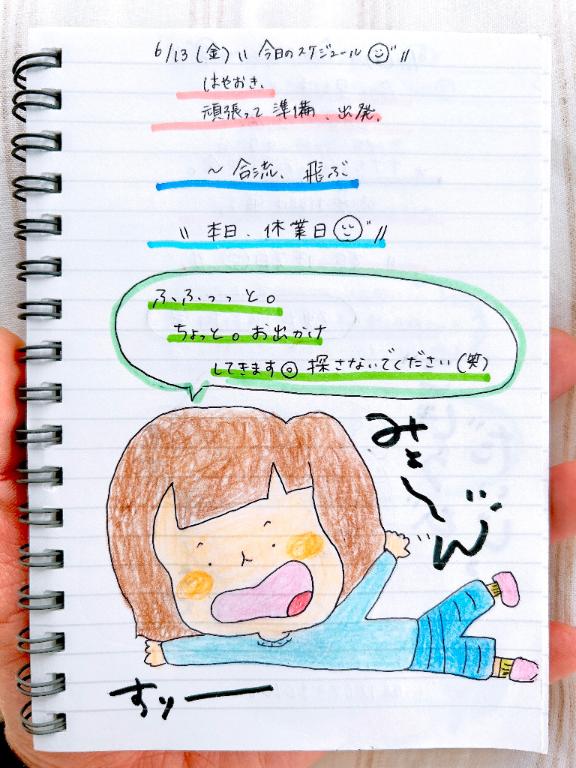 6/13(金)〃今日のスケジュール☺〃
はやおき、
頑張って準備、出発。
～合流、飛ぶ
〃本日、休業日☺〃
ふ、ふっっと。
ちょっと。お出かけ
してきます◎探さないでください(笑)
みょ〜ん
すりー